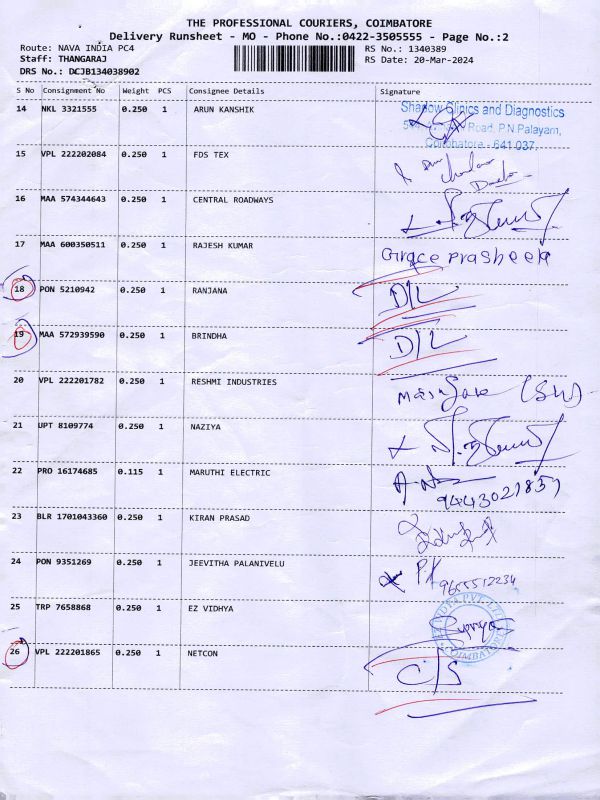 THE PROFESSIONAL COURIERS, COIMBATORE
Delivery Runsheet - MO - Phone No.:0422-3505555 - Page No.:2
Route: NAVA INDIA PC4 RS No.: 1340389
Staff: THANGARAJ RS Date: 20-Mar-2024
DRS No.: DCJB134038902
S No Consignment No Weight PCS Consignee Details Signature
14 NKL 3321555 0.250 1 ARUN KANSHIK
Shadow Clinics and Diagnostics
Road, P.N.Palayam,
Coimbatore - 641 037
15 VPL 222202084 0.250 1 FDS TEX
16 MAA 574344643 0.250 1 CENTRAL ROADWAYS
17 MAA 600350511 0.250 1 RAJESH KUMAR Grace Prasheela
18 PON 5210942 0.250 1 RANJANA D/L
19 MAA 572939590 0.250 1 BRINDHA D/L
20 VPL 222201782 0.250 1 RESHMI INDUSTRIES
21 UPT 8109774 0.250 1 NAZIYA
22 PRO 16174685 0.115 1 MARUTHI ELECTRIC
9443021857
23 BLR 1701043360 0.250 1 KIRAN PRASAD
24 PON 9351269 0.250 1 JEEVITHA PALANIVELU P.K 9655512234
25 TRP 7658868 0.250 1 EZ VIDHYA
INDIA PVT. LTD
COIMBATORE
26 VPL 222201865 0.250 1 NETCON C/S